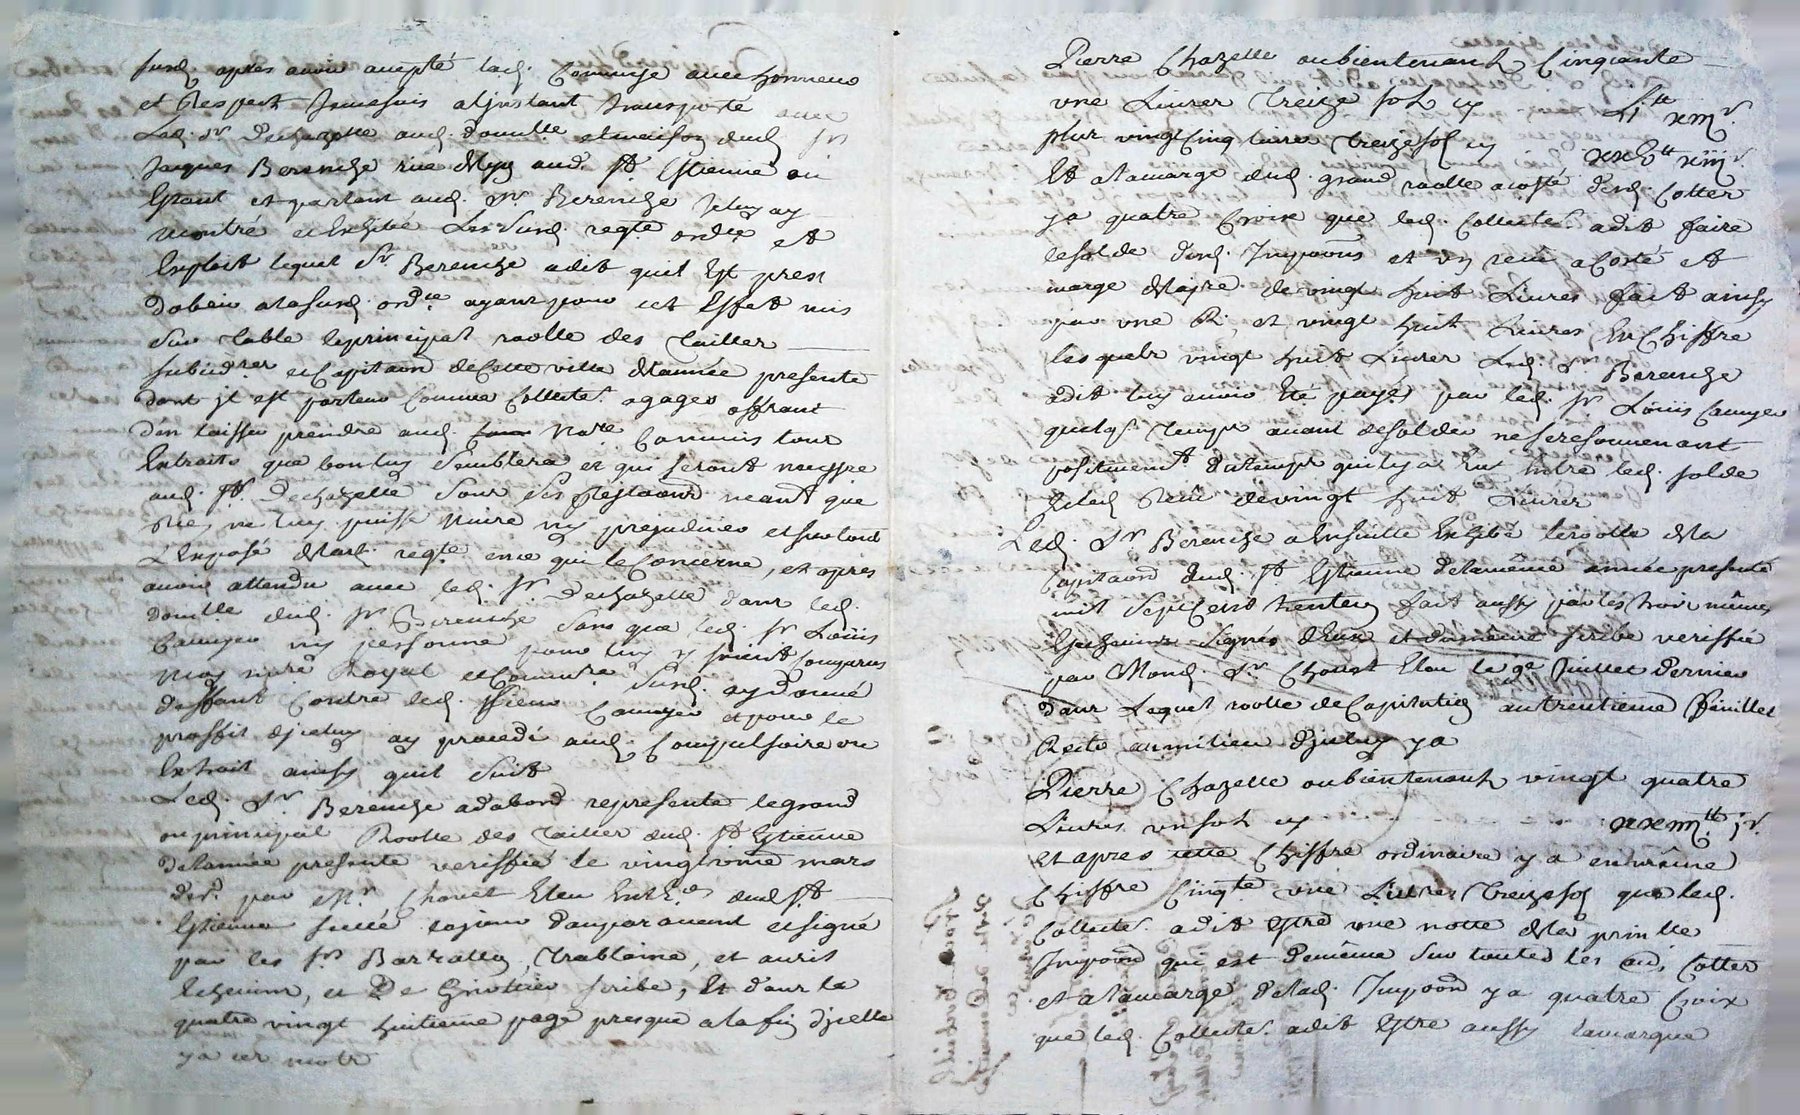 Susd. apres avoir accepté lad. Commise avec honneur
et Respect Jemesuis aljnstant Transporté avec
Led. Sr. Dechazette aud. domlle. et maison dud. Sr
Jaques Berenihe rue aud. St Estienne ou
Estant et parlant aud. Sr Berenihe Jeluy ay
montré et Exhibé Les Susd. reqte ordce et
Exploit lequel Sr. Berenihe adit quil Est prest
dobeir alasusd. ordce ayant pour cet Effet mis
Sur Table leprincipal roolle des Tailles
Subcidres et Capitaon decette ville delannée presente
dont jl est porteur Comme Collectr. agages offrant
den laisser prendre aud. Nore Commis tour
Extraits que bon luy Semblera et qui seront necessre
aud. Sr. Dechazette Sour Ses que
Rien ne luy puisse Nuire ny prejudicier et surtout
L'Exposé delad. reqte ence qui le Concerne, et apres
avoir attendu avec led. Sr. Dechazette dans led.
domlle dud. Sr Berenihe Sans que led. Sr Loüis
Camyer ny personne pour luy y soient Comparus
Moy nore Royal et Commre Susd. ay donné
deffaut Contre led. Sieur Camyer et pour le
proffit djceluy ay procedé aud. Compulsoire ou
Extrait ainsy quil Suit
Led. Sr Berenihe adabord representé legrand
ou principal Roolle des Tailles dud. St Estienne
delannée presente veriffié le vingtroime mars
der. par Mr. Chovet Eleu EnlEon dud. St
Estienne sellé dauparavant et signé
par les Srs Barrallon, Trablaine, et autres
Echevins, et De Grottier scribe, Et dans la
quatre vingt huitieme page presque alafin djcelle
ya ces mots
Pierre Chazette oubientenant Cinquante
une Livres Treize sols cy Li tt xiii s.
plus vingt cinq livres Treize sols cy xxv tt xiii s.
Et alamarge dud. grand roolle acosté desd. Cottes
ya quatre Croix que led. Collectr. adit faire
lesolde desd. Impoons et un reçu acosté et
marge delajre de vingt huit Livres fait ainsy
par une R. et vingt huit Livres En Chiffre
lesquels vingt huit Livres Led. Sr Berenihe
adit luy avoir Eté payés par led. Sr. Loüis Camyer
quelq. Temps avant desolder neseresouvenant
positivement dutemps quil y a Eut Entre led. solde
Et led. Reçu devingt huit Livres
Led. Sr Berenihe aEnsuitte Exhibé leroolle dela
Capitaon dud. St Estienne delamême année presente
mil Sept cent trente fait aussy par les trois mêmes
Echevins Signés d'Eux et dumême scribe veriffié
par Mond. Sr. Chovet Eleu le 9e Juillet dernier
dans Lequel roolle de Capitation autrentieme feüillet
Recto aumilieu djceluy ya
Pierre Chazette oubientenant vingt quatre
Livres un sol cy xxiiii tt j s.
et apres cette Chiffre ordinaire y a en même
Chiffre Cinqte une Livres Treize sols que led.
Collectr. adit Estre une notte dela prinlle
Impoon qui est demême Sur toutes les aus. Cottes
et alamarge delad. Impoon y a quatre Croix
que led. Collectr. adit Estre aussy lamarque